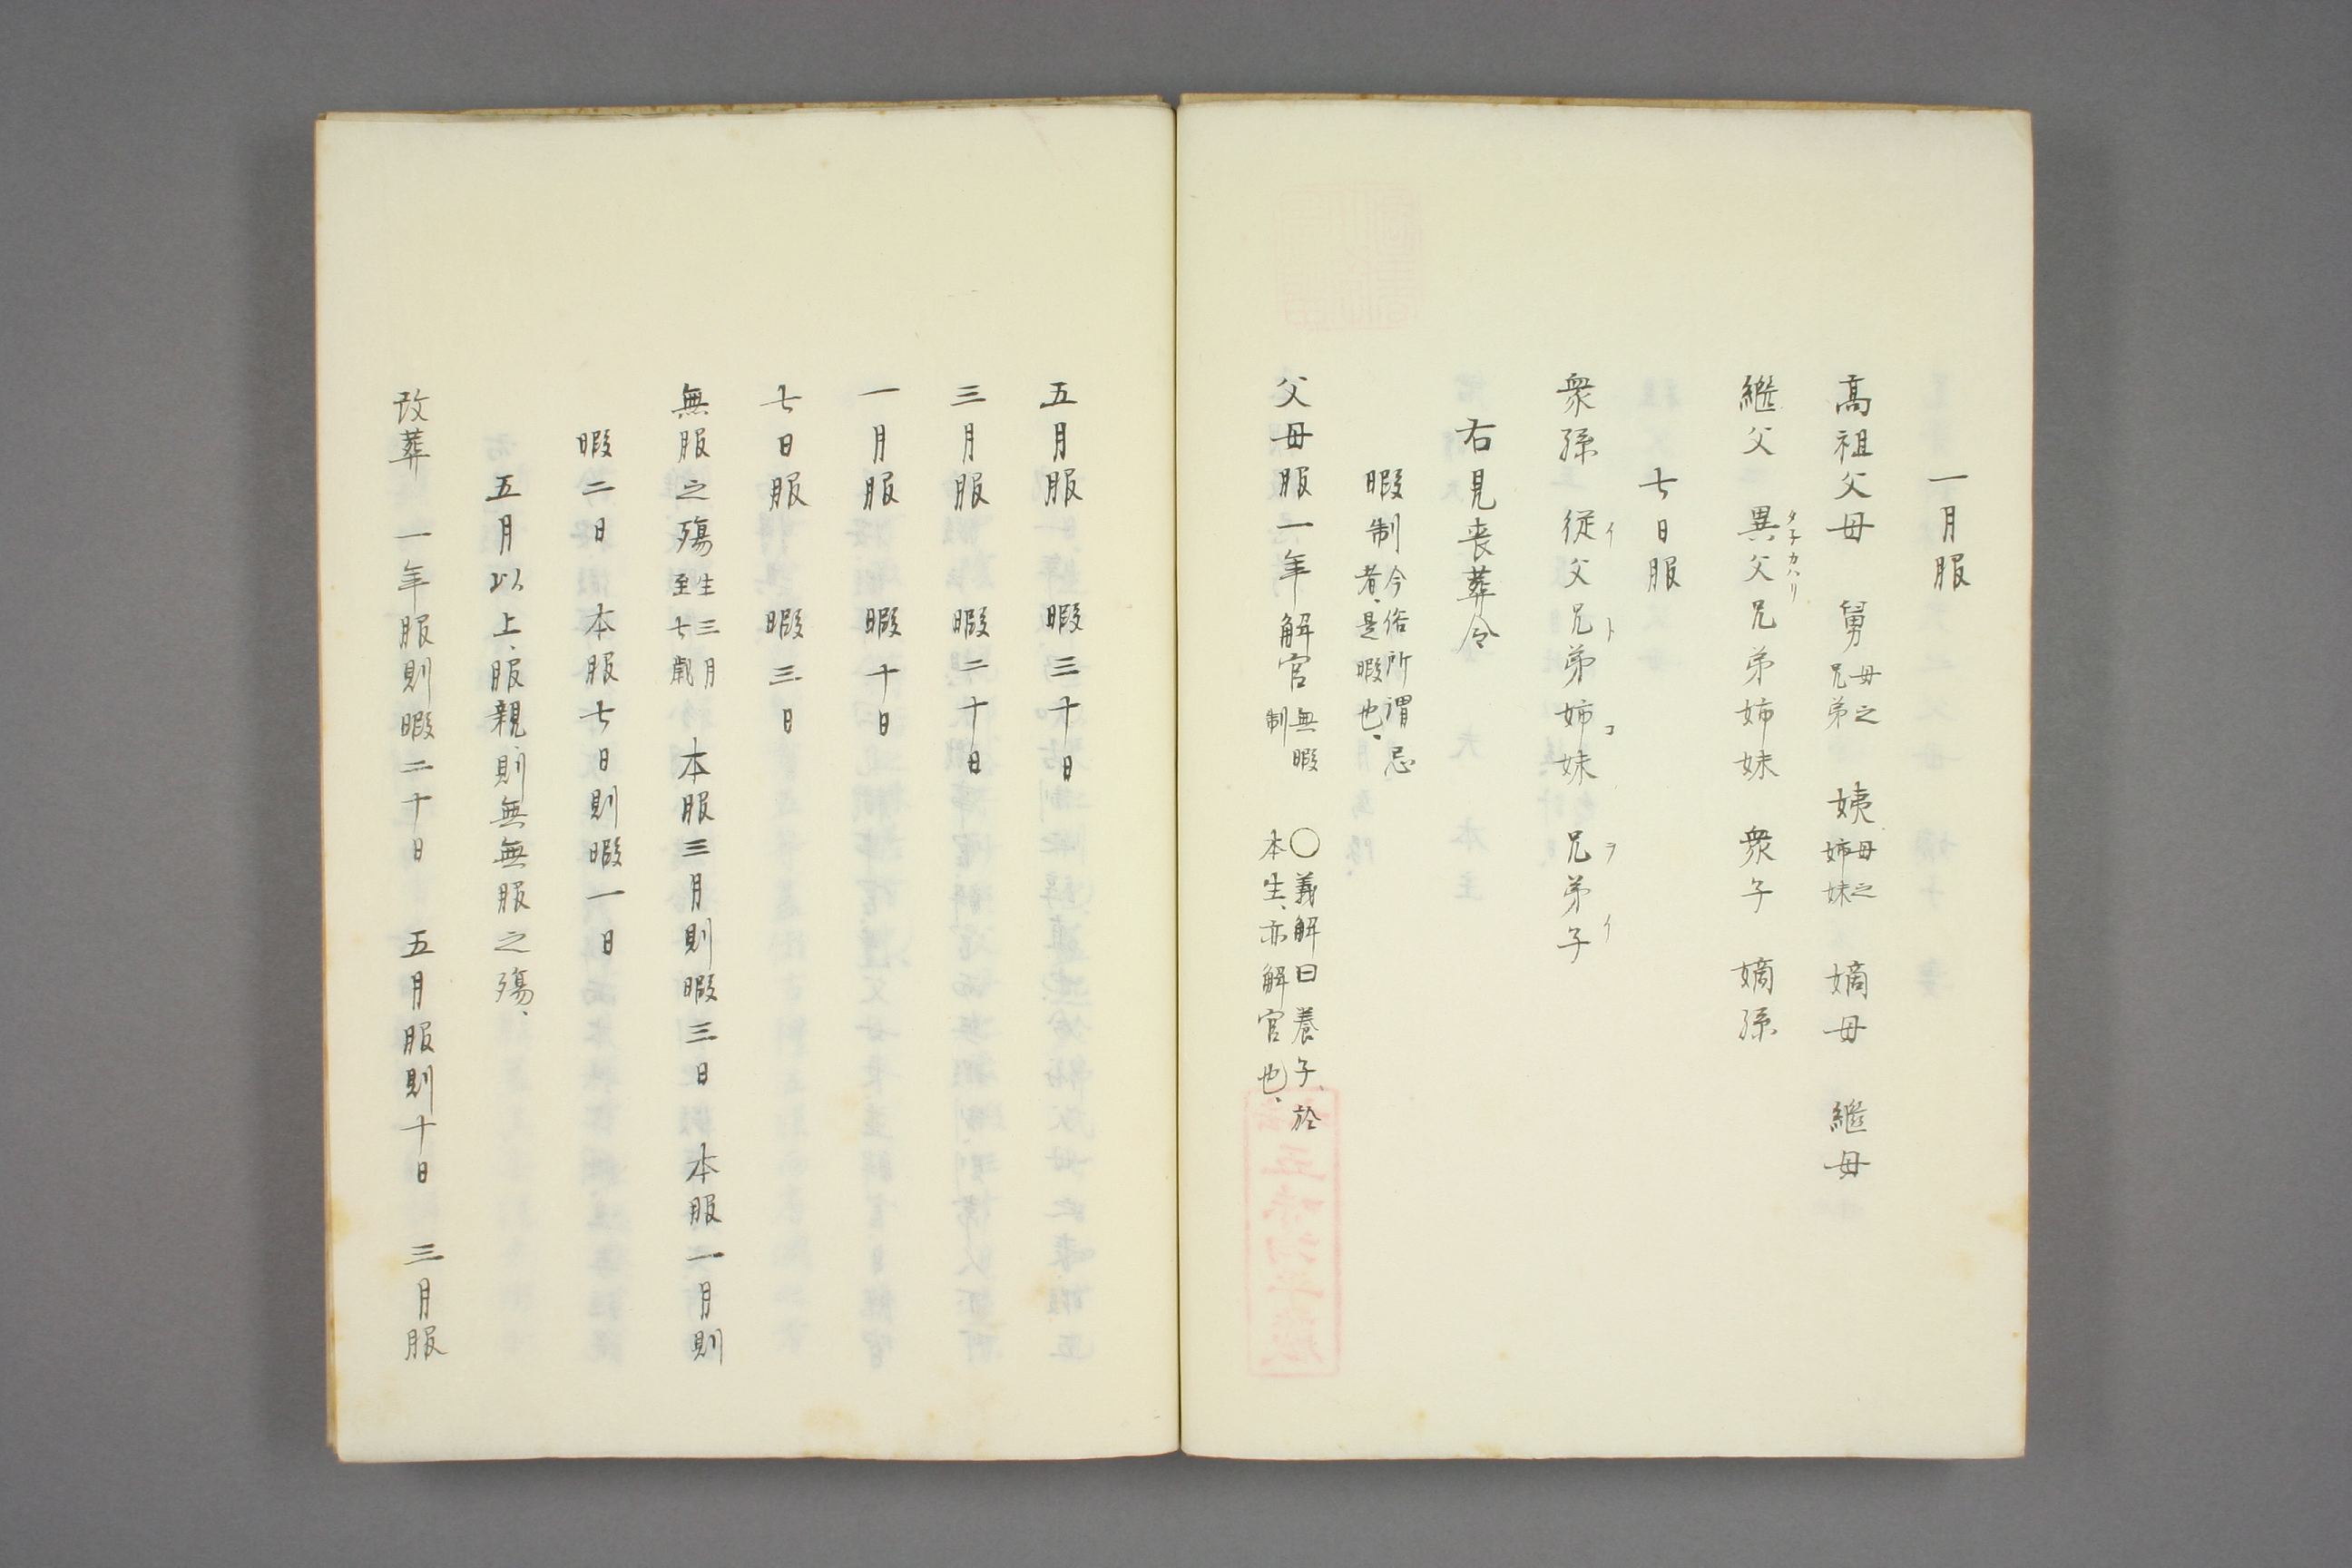 一月服
高祖父母 舅母之兄弟 姨母之姉妹 嫡母 継母
継父 異父兄弟姉妹 衆子 嫡孫
タ子カハリ
七日服
衆孫 従父兄弟姉妹 兄弟子
イトコ ヲイ
右見喪葬令
暇制今俗所謂忌者、是暇也、
父母服一年解官無暇制 ○義解曰養子、於本生、亦解官也、
五月服 暇三十日
三月服 暇二十日
一月服 暇十日
七日服 暇三日
無服之殤生三月至七歳 本服三月則暇三日 本服一月則
暇二日 本服七日則暇一日
五月以上、服親、則無無服之殤、
改葬 一年服則暇二十日 五月服則十日 三月服